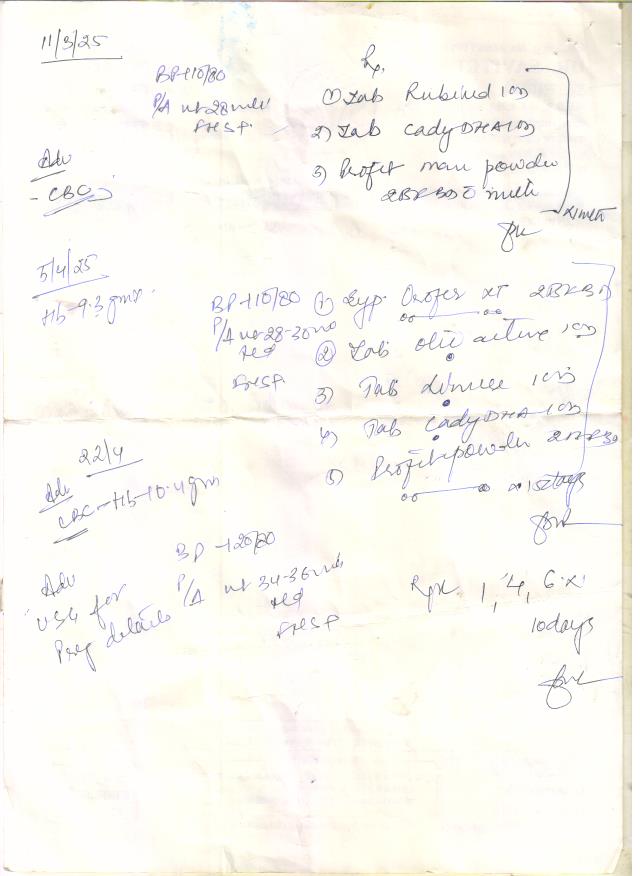 11/3/25
BP-110/80
P/A ut 28 wks
FHSP.
Adv
- CBC
Rx.
1) Tab Rubired 1OD
2) Tab CadyDHA 1OD
3) Profit mom powder
2BKBD C milk
x 1 mth
5/4/25
Hb-9.3 gms.
BP-110/80
P/A ut-28-30
FHSP.
1) Syp. Orofer XT 2BKBD
2) Tab active 1OD
3) Tab 1OD
4) Tab CadyDHA 1OD
5) Profit powder 2BKBD
x 15 days
22/4
Adv
CBC-Hb-10.4 gm
BP-120/80
P/A ut 34-36
FHSP
Adv
USG for
Preg details
Rpt 1, 4, 6 x
10 days